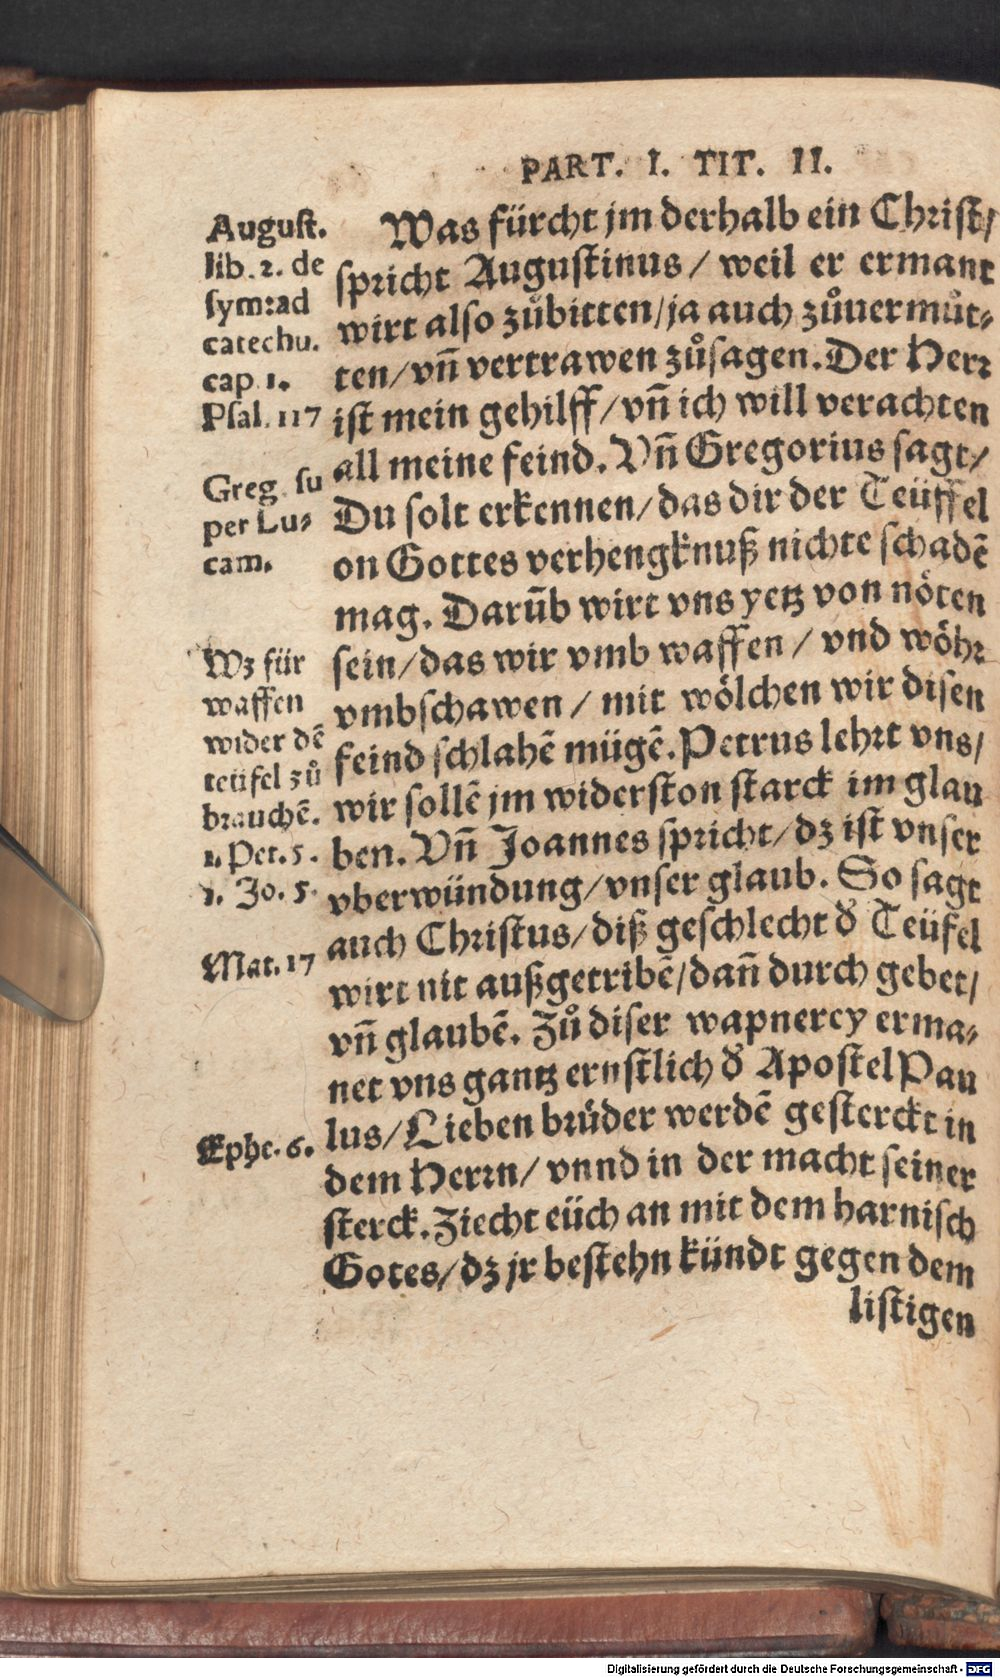 PART. I. TIT. II.
August.
lib. 2. de
sym: ad
catechu.
cap 1.
Psal. 117
Greg. su
per Lu⸗
cam.
Wz für
waffen
wider dē
teüfel zů
brauchē.
1. Pet. 5.
1. Jo. 5.
Mat. 17
Ephe. 6.
Was fürcht jm derhalb ein Christ/
spricht Augustinus / weil er ermant
wirt also zůbitten/ja auch zůuermůt⸗
ten/vñ vertrawen zůsagen. Der Herr
ist mein gehilff/vñ ich will verachten
all meine feind. Vñ Gregorius sagt/
Du solt erkennen/das dir der Teüffel
on Gottes verhengknuß nichte schadē
mag. Darūb wirt vns yetz von nöten
sein/das wir vmb waffen / vnd wöhr
vmbschawen / mit wölchen wir disen
feind schlahē mügē. Petrus lehrt vns/
wir sollē jm widerston starck im glau
ben. Vñ Joannes spricht/dz ist vnser
vberwündung/vnser glaub. So sagt
auch Christus/diß geschlecht d̄ Teüfel
wirt nit außgetribē/dañ durch gebet/
vñ glaubē. Zů diser wapnercy erma⸗
net vns gantz ernstlich d̄ Apostel Pau
lus/Lieben brůder werdē gesterckt in
dem Herrn/ vnnd in der macht seiner
sterck. Ziecht eüch an mit dem harnisch
Gotes/dz jr bestehn kündt gegen dem
listigen
Digitalisierung gefördert durch die Deutsche Forschungsgemeinschaft - DFG